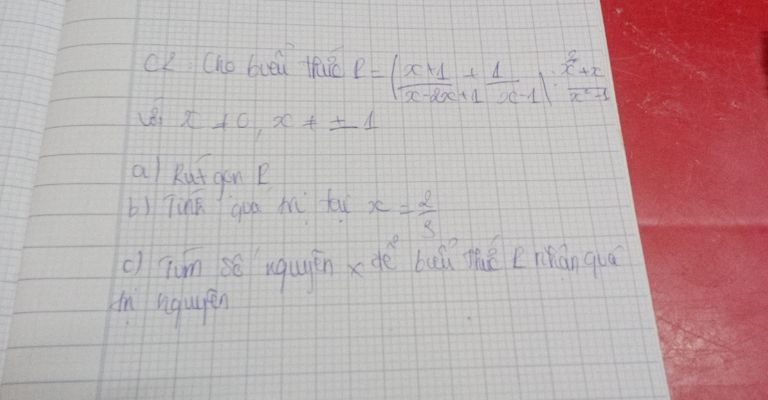 C2. Cho biểu thức P = (x+1/x-2x+1 + 1/x-1) : x²+x/x²-1
với x ≠ 0, x ≠ ± 1
a) Rút gọn P
b) Tính giá trị tại x =
c) Tìm số nguyên x để biểu thức P nhận giá
trị nguyên